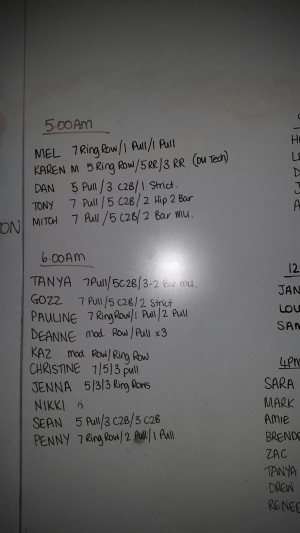 5:00AM
MEL 7 Ring Row/1 Pull/1 Pull
KAREN M 5 Ring Row/5RR/3 RR (Du Tech)
DAN 5 Pull/3 C2B/1 Strict.
TONY 7 Pull/5 C2B/2 Hip 2 Bar
MITCH 7 Pull/5 C2B/2 Bar Mu.
ON
6:00AM
TANYA 7 Pull/5C2B/3-2 Bar mu.
GOZZ 7 Pull/5 C2B/2 Strict
PAULINE 7 Ring Row/1 Pull/2 Pull
DEANNE mod. Row/Pull x3
KAZ mod. Row/Ring Row
CHRISTINE 7/5/3 pull
JENNA 5/3/3 Ring Rows
NIKKI
SEAN 5 Pull/3 C2B/3 C2B
PENNY 7 Ring Row/2 Pull/1 Pull
12
JAN
LOU
SAN
4PM
SARA
MARK
AMIE
BREND
ZAC
TANYA
DREW
RENEE